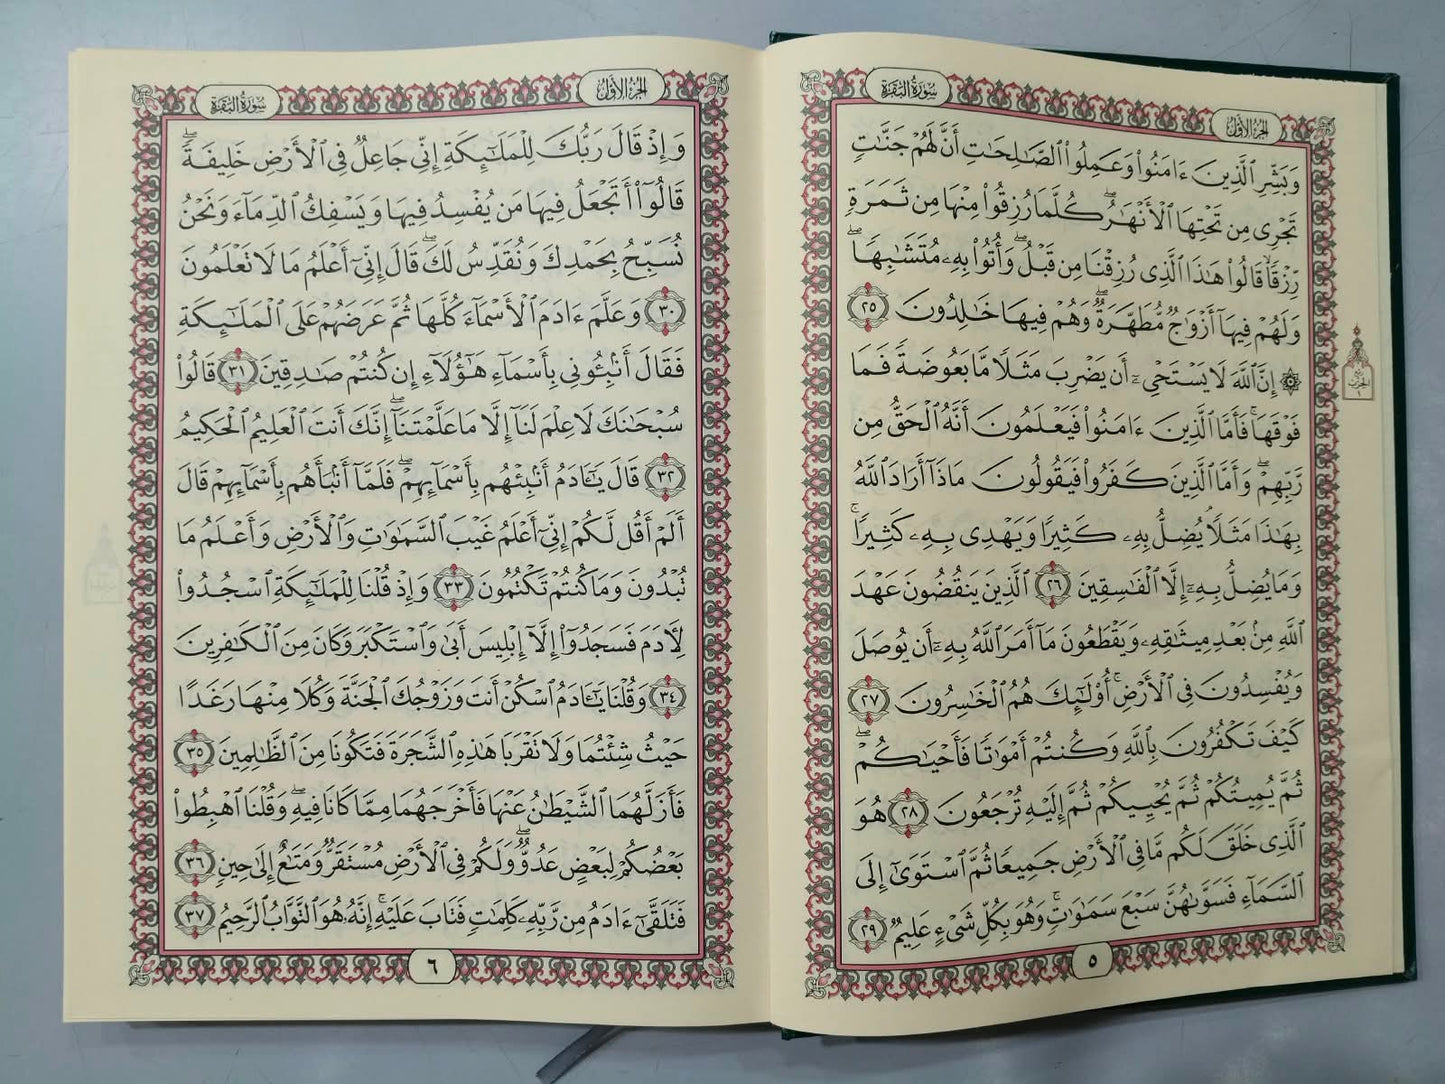 سورة البقرة
الجزء الأول
وَبَشِّرِ ٱلَّذِينَ ءَامَنُوا۟ وَعَمِلُوا۟ ٱلصَّـٰلِحَـٰتِ أَنَّ لَهُمْ جَنَّـٰتٍ
تَجْرِى مِن تَحْتِهَا ٱلْأَنْهَـٰرُ ۖ كُلَّمَا رُزِقُوا۟ مِنْهَا مِن ثَمَرَةٍ
رِّزْقًا ۙ قَالُوا۟ هَـٰذَا ٱلَّذِى رُزِقْنَا مِن قَبْلُ ۖ وَأُتُوا۟ بِهِۦ مُتَشَـٰبِهًا ۖ
وَلَهُمْ فِيهَآ أَزْوَٰجٌ مُّطَهَّرَةٌ ۖ وَهُمْ فِيهَا خَـٰلِدُونَ ٢٥
۞ إِنَّ ٱللَّهَ لَا يَسْتَحْىِۦٓ أَن يَضْرِبَ مَثَلًا مَّا بَعُوضَةً فَمَا
فَوْقَهَا ۚ فَأَمَّا ٱلَّذِينَ ءَامَنُوا۟ فَيَعْلَمُونَ أَنَّهُ ٱلْحَقُّ مِن
رَّبِّهِمْ ۖ وَأَمَّا ٱلَّذِينَ كَفَرُوا۟ فَيَقُولُونَ مَاذَآ أَرَادَ ٱللَّهُ
بِهَـٰذَا مَثَلًا ۘ يُضِلُّ بِهِۦ كَثِيرًا وَيَهْدِى بِهِۦ كَثِيرًا ۚ
وَمَا يُضِلُّ بِهِۦٓ إِلَّا ٱلْفَـٰسِقِينَ ٢٦ ٱلَّذِينَ يَنقُضُونَ عَهْدَ
ٱللَّهِ مِنۢ بَعْدِ مِيثَـٰقِهِۦ وَيَقْطَعُونَ مَآ أَمَرَ ٱللَّهُ بِهِۦٓ أَن يُوصَلَ
وَيُفْسِدُونَ فِى ٱلْأَرْضِ ۚ أُو۟لَـٰٓئِكَ هُمُ ٱلْخَـٰسِرُونَ ٢٧
كَيْفَ تَكْفُرُونَ بِٱللَّهِ وَكُنتُمْ أَمْوَٰتًا فَأَحْيَـٰكُمْ ۖ
ثُمَّ يُمِيتُكُمْ ثُمَّ يُحْيِيكُمْ ثُمَّ إِلَيْهِ تُرْجَعُونَ ٢٨ هُوَ
ٱلَّذِى خَلَقَ لَكُم مَّا فِى ٱلْأَرْضِ جَمِيعًا ثُمَّ ٱسْتَوَىٰٓ إِلَى
ٱلسَّمَآءِ فَسَوَّىٰهُنَّ سَبْعَ سَمَـٰوَٰتٍ ۚ وَهُوَ بِكُلِّ شَىْءٍ عَلِيمٌ ٢٩
٥
سورة البقرة
الجزء الأول
وَإِذْ قَالَ رَبُّكَ لِلْمَلَـٰٓئِكَةِ إِنِّى جَاعِلٌ فِى ٱلْأَرْضِ خَلِيفَةً ۖ
قَالُوٓا۟ أَتَجْعَلُ فِيهَا مَن يُفْسِدُ فِيهَا وَيَسْفِكُ ٱلدِّمَآءَ وَنَحْنُ
نُسَبِّحُ بِحَمْدِكَ وَنُقَدِّسُ لَكَ ۖ قَالَ إِنِّىٓ أَعْلَمُ مَا لَا تَعْلَمُونَ
٣٠ وَعَلَّمَ ءَادَمَ ٱلْأَسْمَآءَ كُلَّهَا ثُمَّ عَرَضَهُمْ عَلَى ٱلْمَلَـٰٓئِكَةِ
فَقَالَ أَنۢبِـُٔونِى بِأَسْمَآءِ هَـٰٓؤُلَآءِ إِن كُنتُمْ صَـٰدِقِينَ ٣١ قَالُوا۟
سُبْحَـٰنَكَ لَا عِلْمَ لَنَآ إِلَّا مَا عَلَّمْتَنَآ ۖ إِنَّكَ أَنتَ ٱلْعَلِيمُ ٱلْحَكِيمُ
٣٢ قَالَ يَـٰٓـَٔادَمُ أَنۢبِئْهُم بِأَسْمَآئِهِمْ ۖ فَلَمَّآ أَنۢبَأَهُم بِأَسْمَآئِهِمْ قَالَ
أَلَمْ أَقُل لَّكُمْ إِنِّىٓ أَعْلَمُ غَيْبَ ٱلسَّمَـٰوَٰتِ وَٱلْأَرْضِ وَأَعْلَمُ مَا
تُبْدُونَ وَمَا كُنتُمْ تَكْتُمُونَ ٣٣ وَإِذْ قُلْنَا لِلْمَلَـٰٓئِكَةِ ٱسْجُدُوا۟
لِـَٔادَمَ فَسَجَدُوٓا۟ إِلَّآ إِبْلِيسَ أَبَىٰ وَٱسْتَكْبَرَ وَكَانَ مِنَ ٱلْكَـٰفِرِينَ
٣٤ وَقُلْنَا يَـٰٓـَٔادَمُ ٱسْكُنْ أَنتَ وَزَوْجُكَ ٱلْجَنَّةَ وَكُلَا مِنْهَا رَغَدًا
حَيْثُ شِئْتُمَا وَلَا تَقْرَبَا هَـٰذِهِ ٱلشَّجَرَةَ فَتَكُونَا مِنَ ٱلظَّـٰلِمِينَ ٣٥
فَأَزَلَّهُمَا ٱلشَّيْطَـٰنُ عَنْهَا فَأَخْرَجَهُمَا مِمَّا كَانَا فِيهِ ۖ وَقُلْنَا ٱهْبِطُوا۟
بَعْضُكُمْ لِبَعْضٍ عَدُوٌّ ۖ وَلَكُمْ فِى ٱلْأَرْضِ مُسْتَقَرٌّ وَمَتَـٰعٌ إِلَىٰ حِينٍ ٣٦
فَتَلَقَّىٰٓ ءَادَمُ مِن رَّبِّهِۦ كَلِمَـٰتٍ فَتَابَ عَلَيْهِ ۚ إِنَّهُۥ هُوَ ٱلتَّوَّابُ ٱلرَّحِيمُ ٣٧
٦